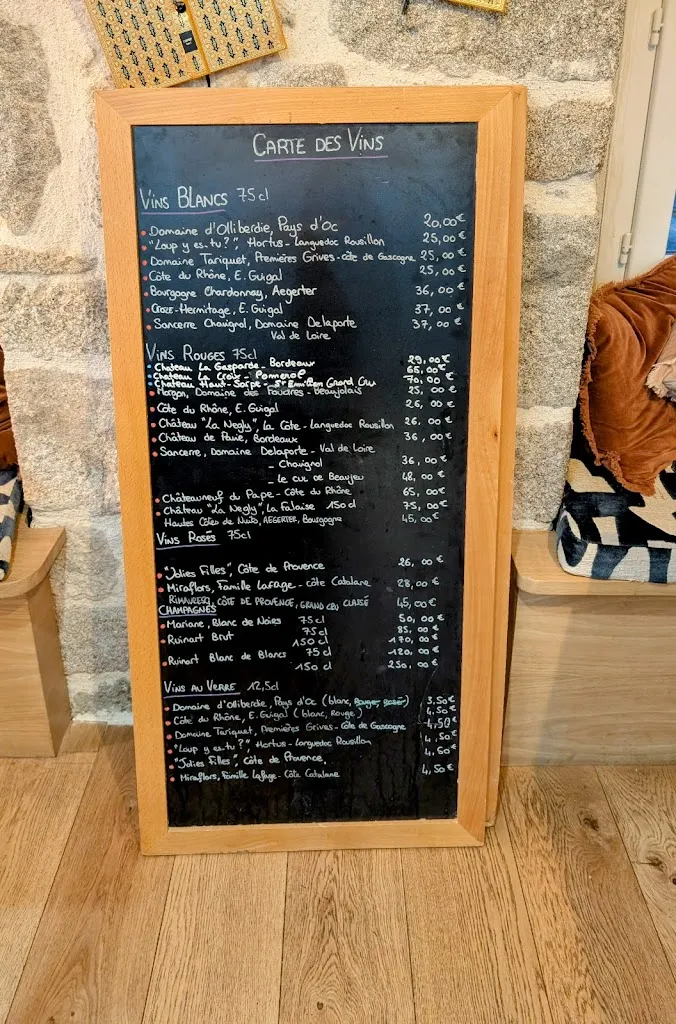 CARTE DES VINS
VINS BLANCS 75cl
Domaine d'Olliberdie, Pays d'Oc 20,00€
"Loup y es-tu?", Hortus - Languedoc Rousillon 25,00€
Domaine Tariquet, Premières Grives - côte de Gascogne 25,00€
Côte du Rhône, E. Guigal 25,00€
Bourgogne Chardonnay, Aegerter 36,00€
Croze-Hermitage, E. Guigal 37,00€
Sancerre Chavignol, Domaine Delaporte 37,00€
Val de Loire
VINS ROUGES 75cl
Chateau La Gasparde - Bordeaux 29,00€
Chateau La Croix - Pomerol 65,00€
Chateau Haut-Sarpe - St Emilion Grand Cru 70,00€
Morgon, Domaine des Foudres - Beaujolais 25,00€
Côte du Rhône, E. Guigal 26,00€
Château "La Negly", La Côte - Languedoc Rousillon 26,00€
Château de Parie, Bordeaux 36,00€
Sancerre, Domaine Delaporte - Val de Loire
- Chavignol 36,00€
- Le cul de Beaujeu 48,00€
Châteauneuf du Pape - Côte du Rhône 65,00€
Château "La Negly", La Falaise 150cl 75,00€
Hautes Côtes de Nuits, AEGERTER, Bourgogne 45,00€
VINS ROSÉS 75cl
"Jolies Filles", Côte de Provence 26,00€
Miraflors, Famille Lafage - côte Catalane 28,00€
RIMAURESQ, CÔTE DE PROVENCE, GRAND CRU CLASSÉ 45,00€
CHAMPAGNES
Mariane, Blanc de Noirs 75cl 50,00€
Ruinart Brut 75cl 85,00€
150cl 170,00€
Ruinart Blanc de Blancs 75cl 120,00€
150cl 250,00€
VINS AU VERRE 12,5cl
Domaine d'Olliberdie, Pays d'Oc (blanc, Rouge, Rosé) 3,50€
Côte du Rhône, E. Guigal (blanc, Rouge) 4,50€
Domaine Tariquet, Premières Grives - Côte de Gascogne 4,50€
"Loup y es-tu?", Hortus - Languedoc Rousillon 4,50€
"Jolies Filles", Côte de Provence, 4,50€
Miraflors, Famille Lafage - Côte Catalane 4,50€